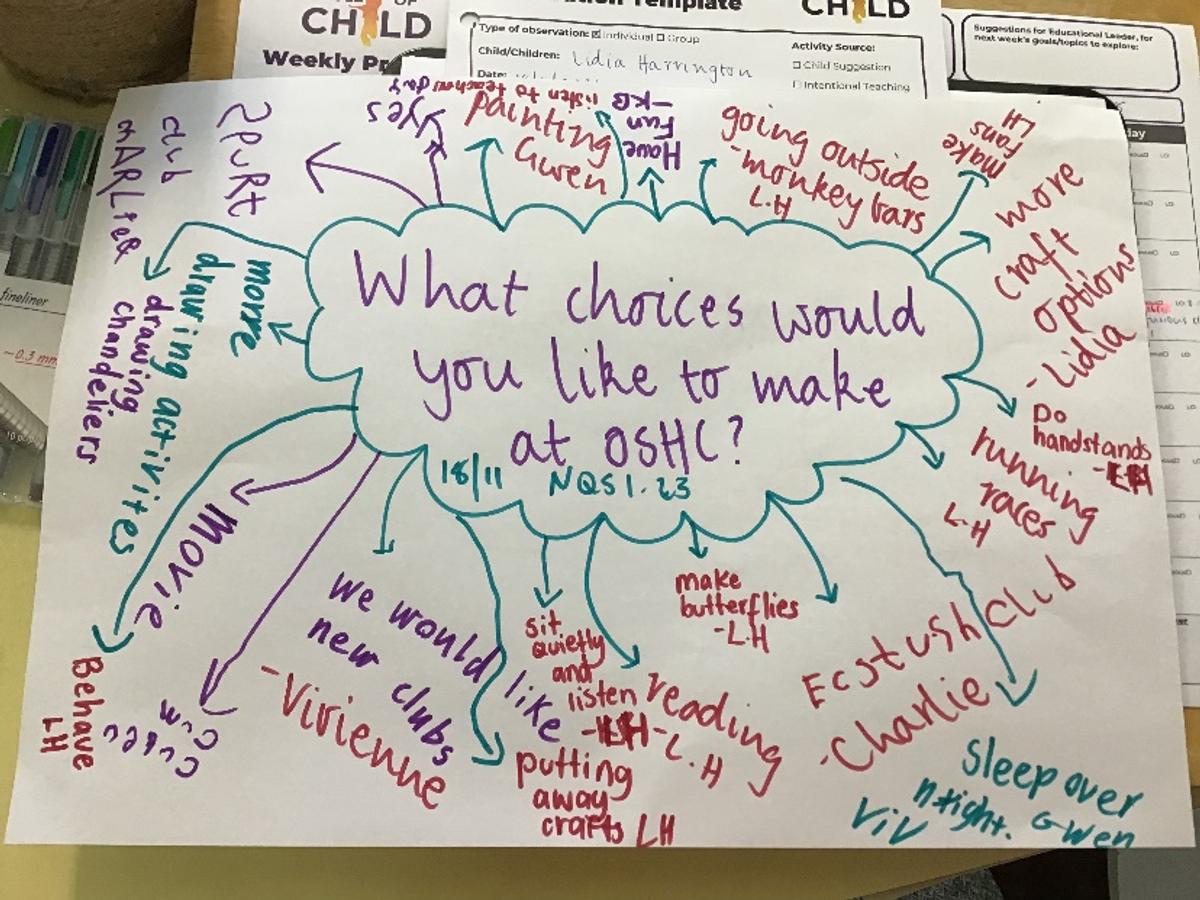 OF
CHILD
Weekly Pr
ion Template
CHILD
Type of observation: Individual Group
Child/Children: Lidia Harrington
Date:
Activity Source:
Child Suggestion
Intentional Teaching
Suggestions for Educational Leader, for
next week's goals/topics to explore:
day
fineliner
~0.3 mm
What choices would
you like to make
at OSHC?
18/11 NQS 1.23
yes
painting
Gwen
listen to teachers
Have
Fun
-KB
going outside
-monkey bars
L.H
make
Fans
LH
more
craft
options
- Lidia
Do
handstands
-LH
running
races
L.H
Ecstush Club
-Charlie
Sleep over
Gwen
Viv
make
butterflies
-L.H
reading
-L.H
sit
quietly
and
listen
-LH
putting
away
crafts LH
we would like
new clubs
-Vivienne
Movie
Behave
LH
more
drawing activites
drawing
chandeliers
club